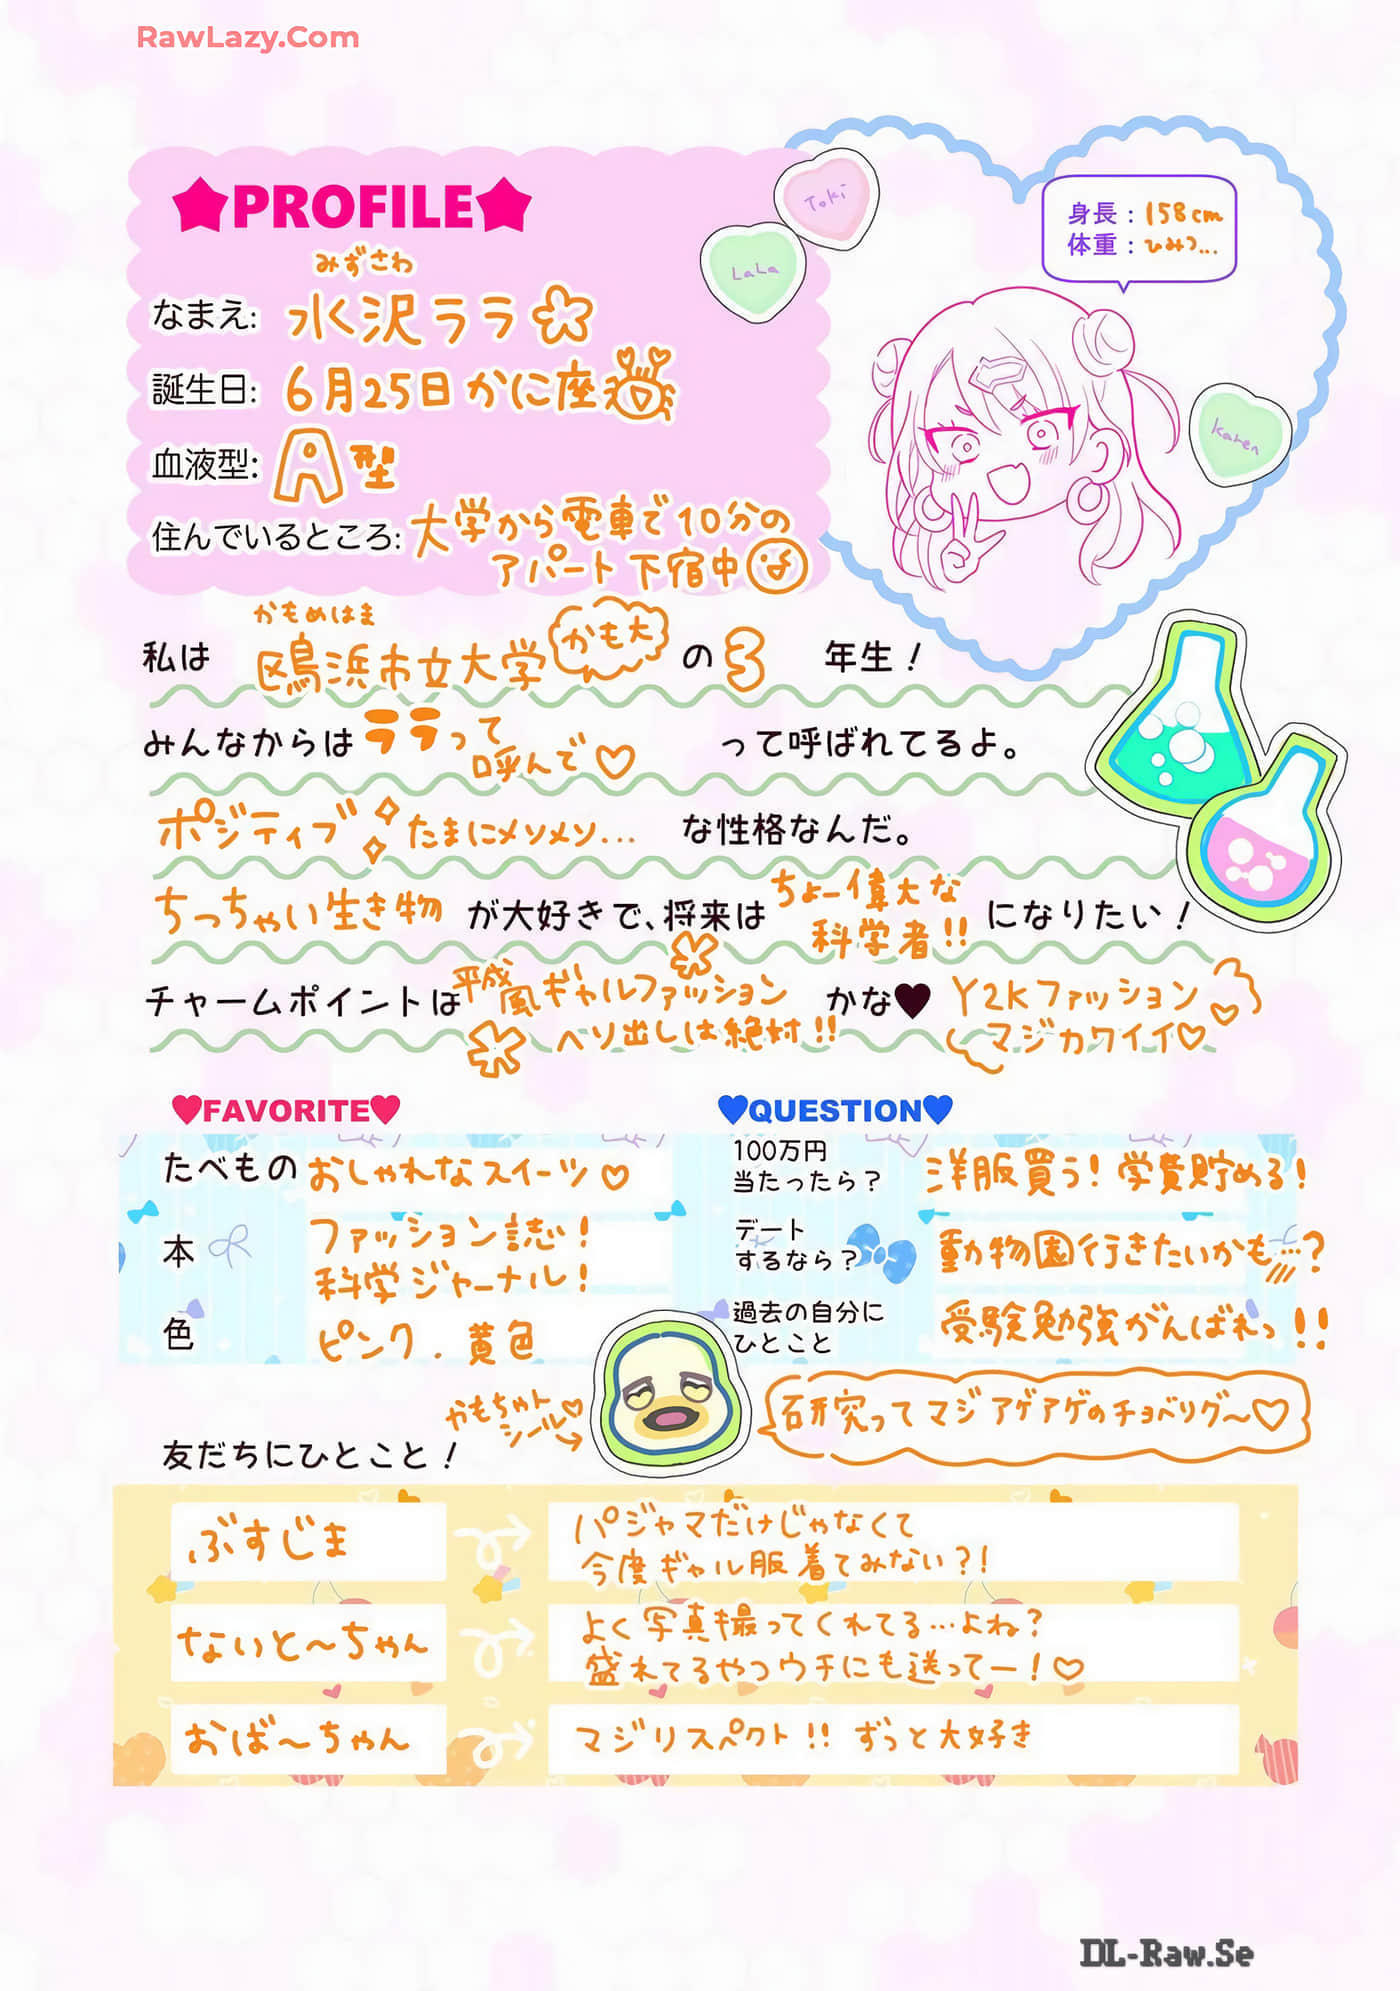 RawLazy.Com
★PROFILE★
Toki
LaLa
身長：158cm
体重：ひみつ...
みずさわ
なまえ: 水沢ララ
誕生日: 6月25日かに座
血液型: A型
Karen
住んでいるところ: 大学から電車で10分の
アパート下宿中
かもめはま
私は 鴎浜市立大学 かも大 の 3 年生！
みんなからは ララって呼んで♡ って呼ばれてるよ。
ポジティブ たまにメソメソ... な性格なんだ。
ちっちゃい生き物 が大好きで、将来は ちょー偉大な科学者!! になりたい！
チャームポイントは 平成風ギャルファッション かな♥ Y2Kファッション
ヘソ出しは絶対!! マジカワイイ♡
♥FAVORITE♥
たべもの おしゃれなスイーツ♡
本 ファッション誌！
科学ジャーナル！
色 ピンク．黄色
♥QUESTION♥
100万円
当たったら？ 洋服買う！学費貯める！
デート
するなら？ 動物園行きたいかも…？
過去の自分に
ひとこと 受験勉強がんばれっ!!
かもちゃん
シール♡
研究ってマジアゲアゲのチョベリグ〜♡
友だちにひとこと！
ぶすじま
パジャマだけじゃなくて
今度ギャル服着てみない？！
ないと〜ちゃん
よく写真撮ってくれてる…よね？
盛れてるやつウチにも送ってー！♡
おば〜ちゃん
マジリスペクト!! ずっと大好き
DL-Raw.Se